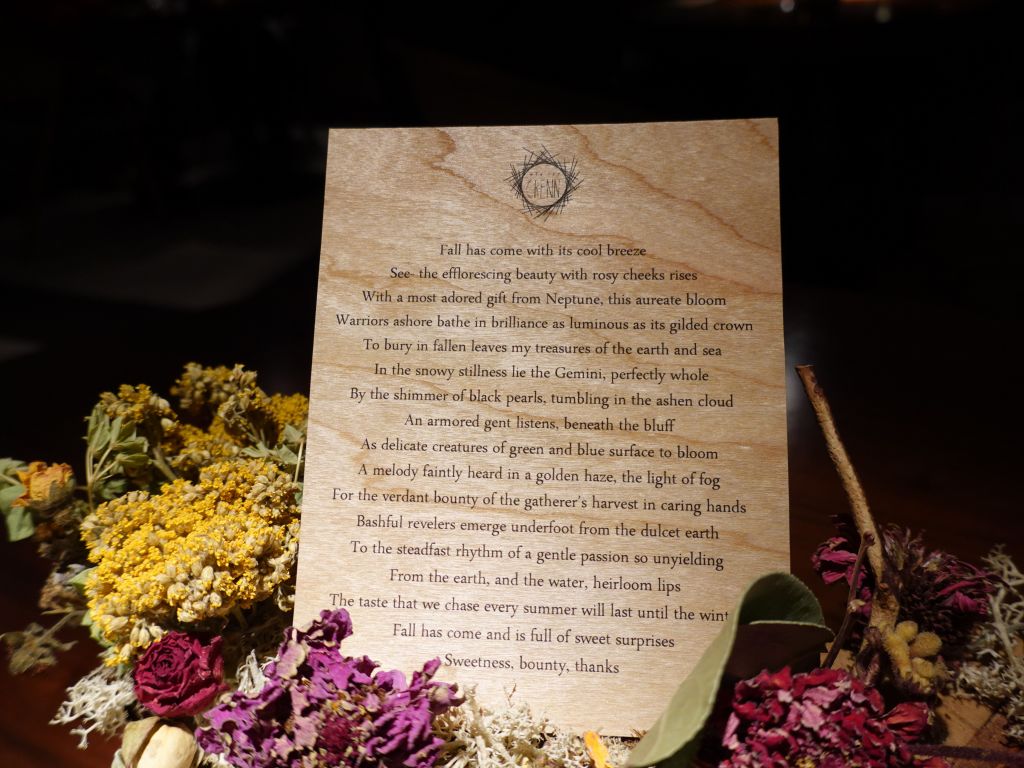 CRENN
Fall has come with its cool breeze
See- the efflorescing beauty with rosy cheeks rises
With a most adored gift from Neptune, this aureate bloom
Warriors ashore bathe in brilliance as luminous as its gilded crown
To bury in fallen leaves my treasures of the earth and sea
In the snowy stillness lie the Gemini, perfectly whole
By the shimmer of black pearls, tumbling in the ashen cloud
An armored gent listens, beneath the bluff
As delicate creatures of green and blue surface to bloom
A melody faintly heard in a golden haze, the light of fog
For the verdant bounty of the gatherer's harvest in caring hands
Bashful revelers emerge underfoot from the dulcet earth
To the steadfast rhythm of a gentle passion so unyielding
From the earth, and the water, heirloom lips
The taste that we chase every summer will last until the wint
Fall has come and is full of sweet surprises
Sweetness, bounty, thanks